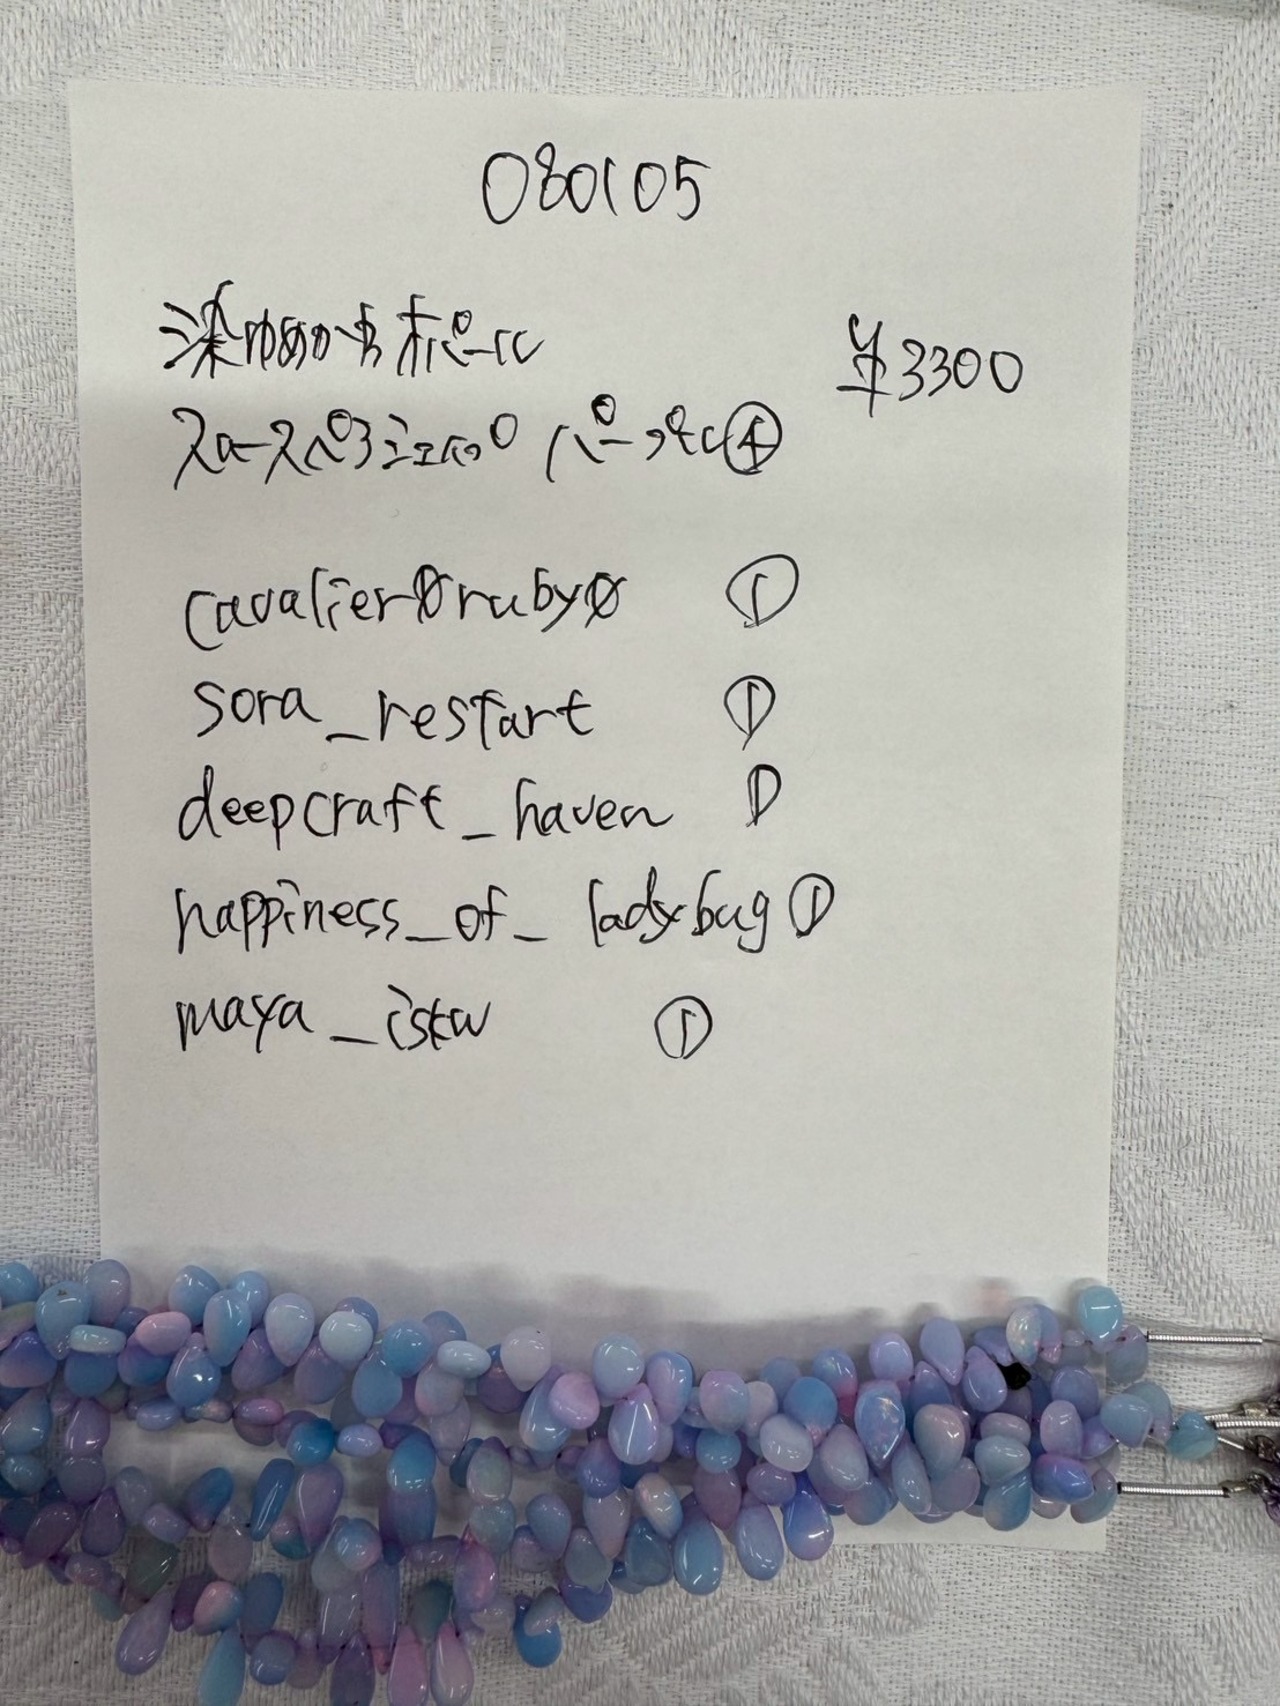 080105
染ゆめかわオパール
スムースペアシェイプ パープル④
¥3300
cavalier0ruby0 ①
sora_restart ①
deepcraft_haven ①
happiness_of_ladybug ①
maya_istw ①